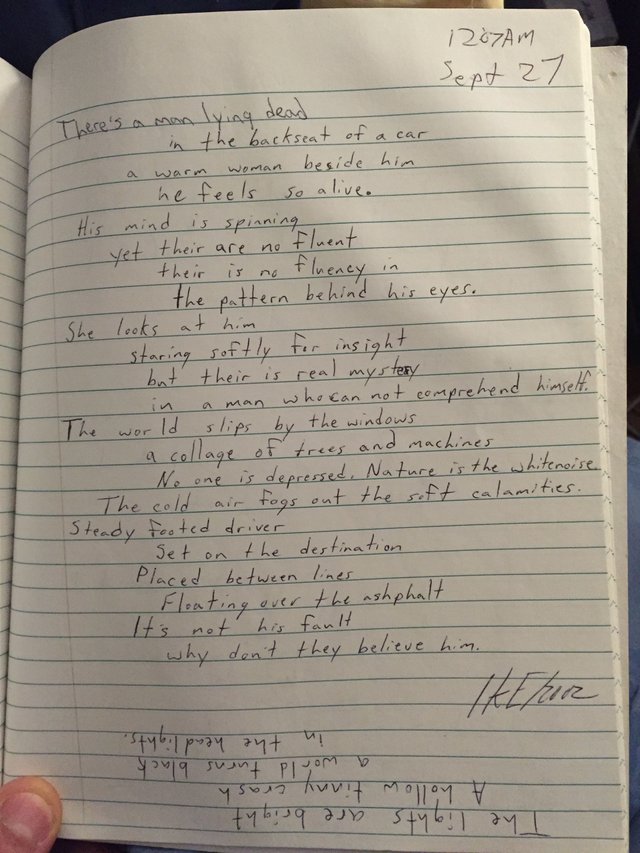 1207AM
Sept 27
There's a man lying dead
in the backseat of a car
a warm woman beside him
he feels so alive.
His mind is spinning
yet their are no fluent
their is no fluency in
the pattern behind his eyes.
She looks at him
staring softly for insight
but their is real mystery
in a man who can not comprehend himself.
The world slips by the windows
a collage of trees and machines
No one is depressed. Nature is the whitenoise
The cold air fogs out the soft calamities.
Steady footed driver
Set on the destination
Placed between lines
Floating over the ashphalt
It's not his fault
why don't they believe him.
The lights are bright
A hollow tinny crash
a world turns black
in the headlights.